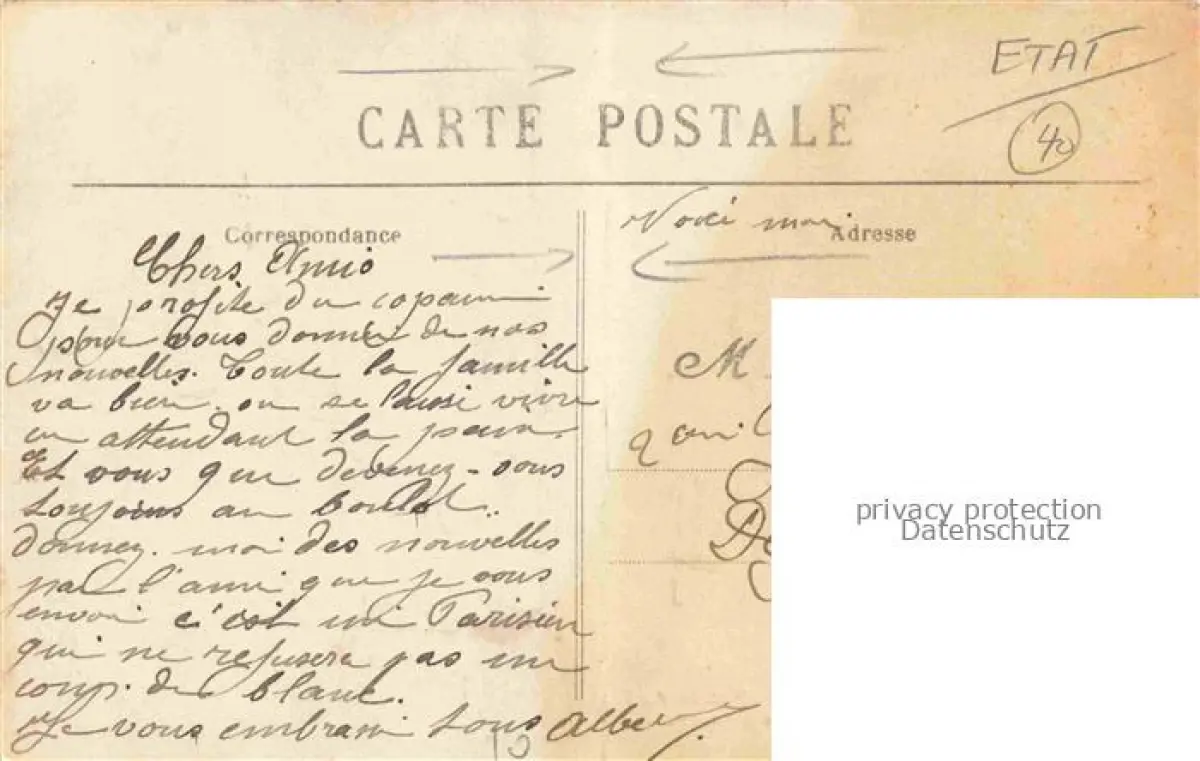 ETAT
40
CARTE POSTALE
Correspondance
Adresse
Chers Amis
Je profite du copain
pour vous donner de nos
nouvelles. Toute la famille
va bien. on se laisse vivre
en attendant la
Et vous que devenez-vous
toujours au boulot.
donnez-moi des nouvelles
par l'ami que je vous
envoi c'est un Parisien
qui ne refusera pas un
coup de blanc.
Je vous embrasse tous Albert
M
privacy protection
Datenschutz